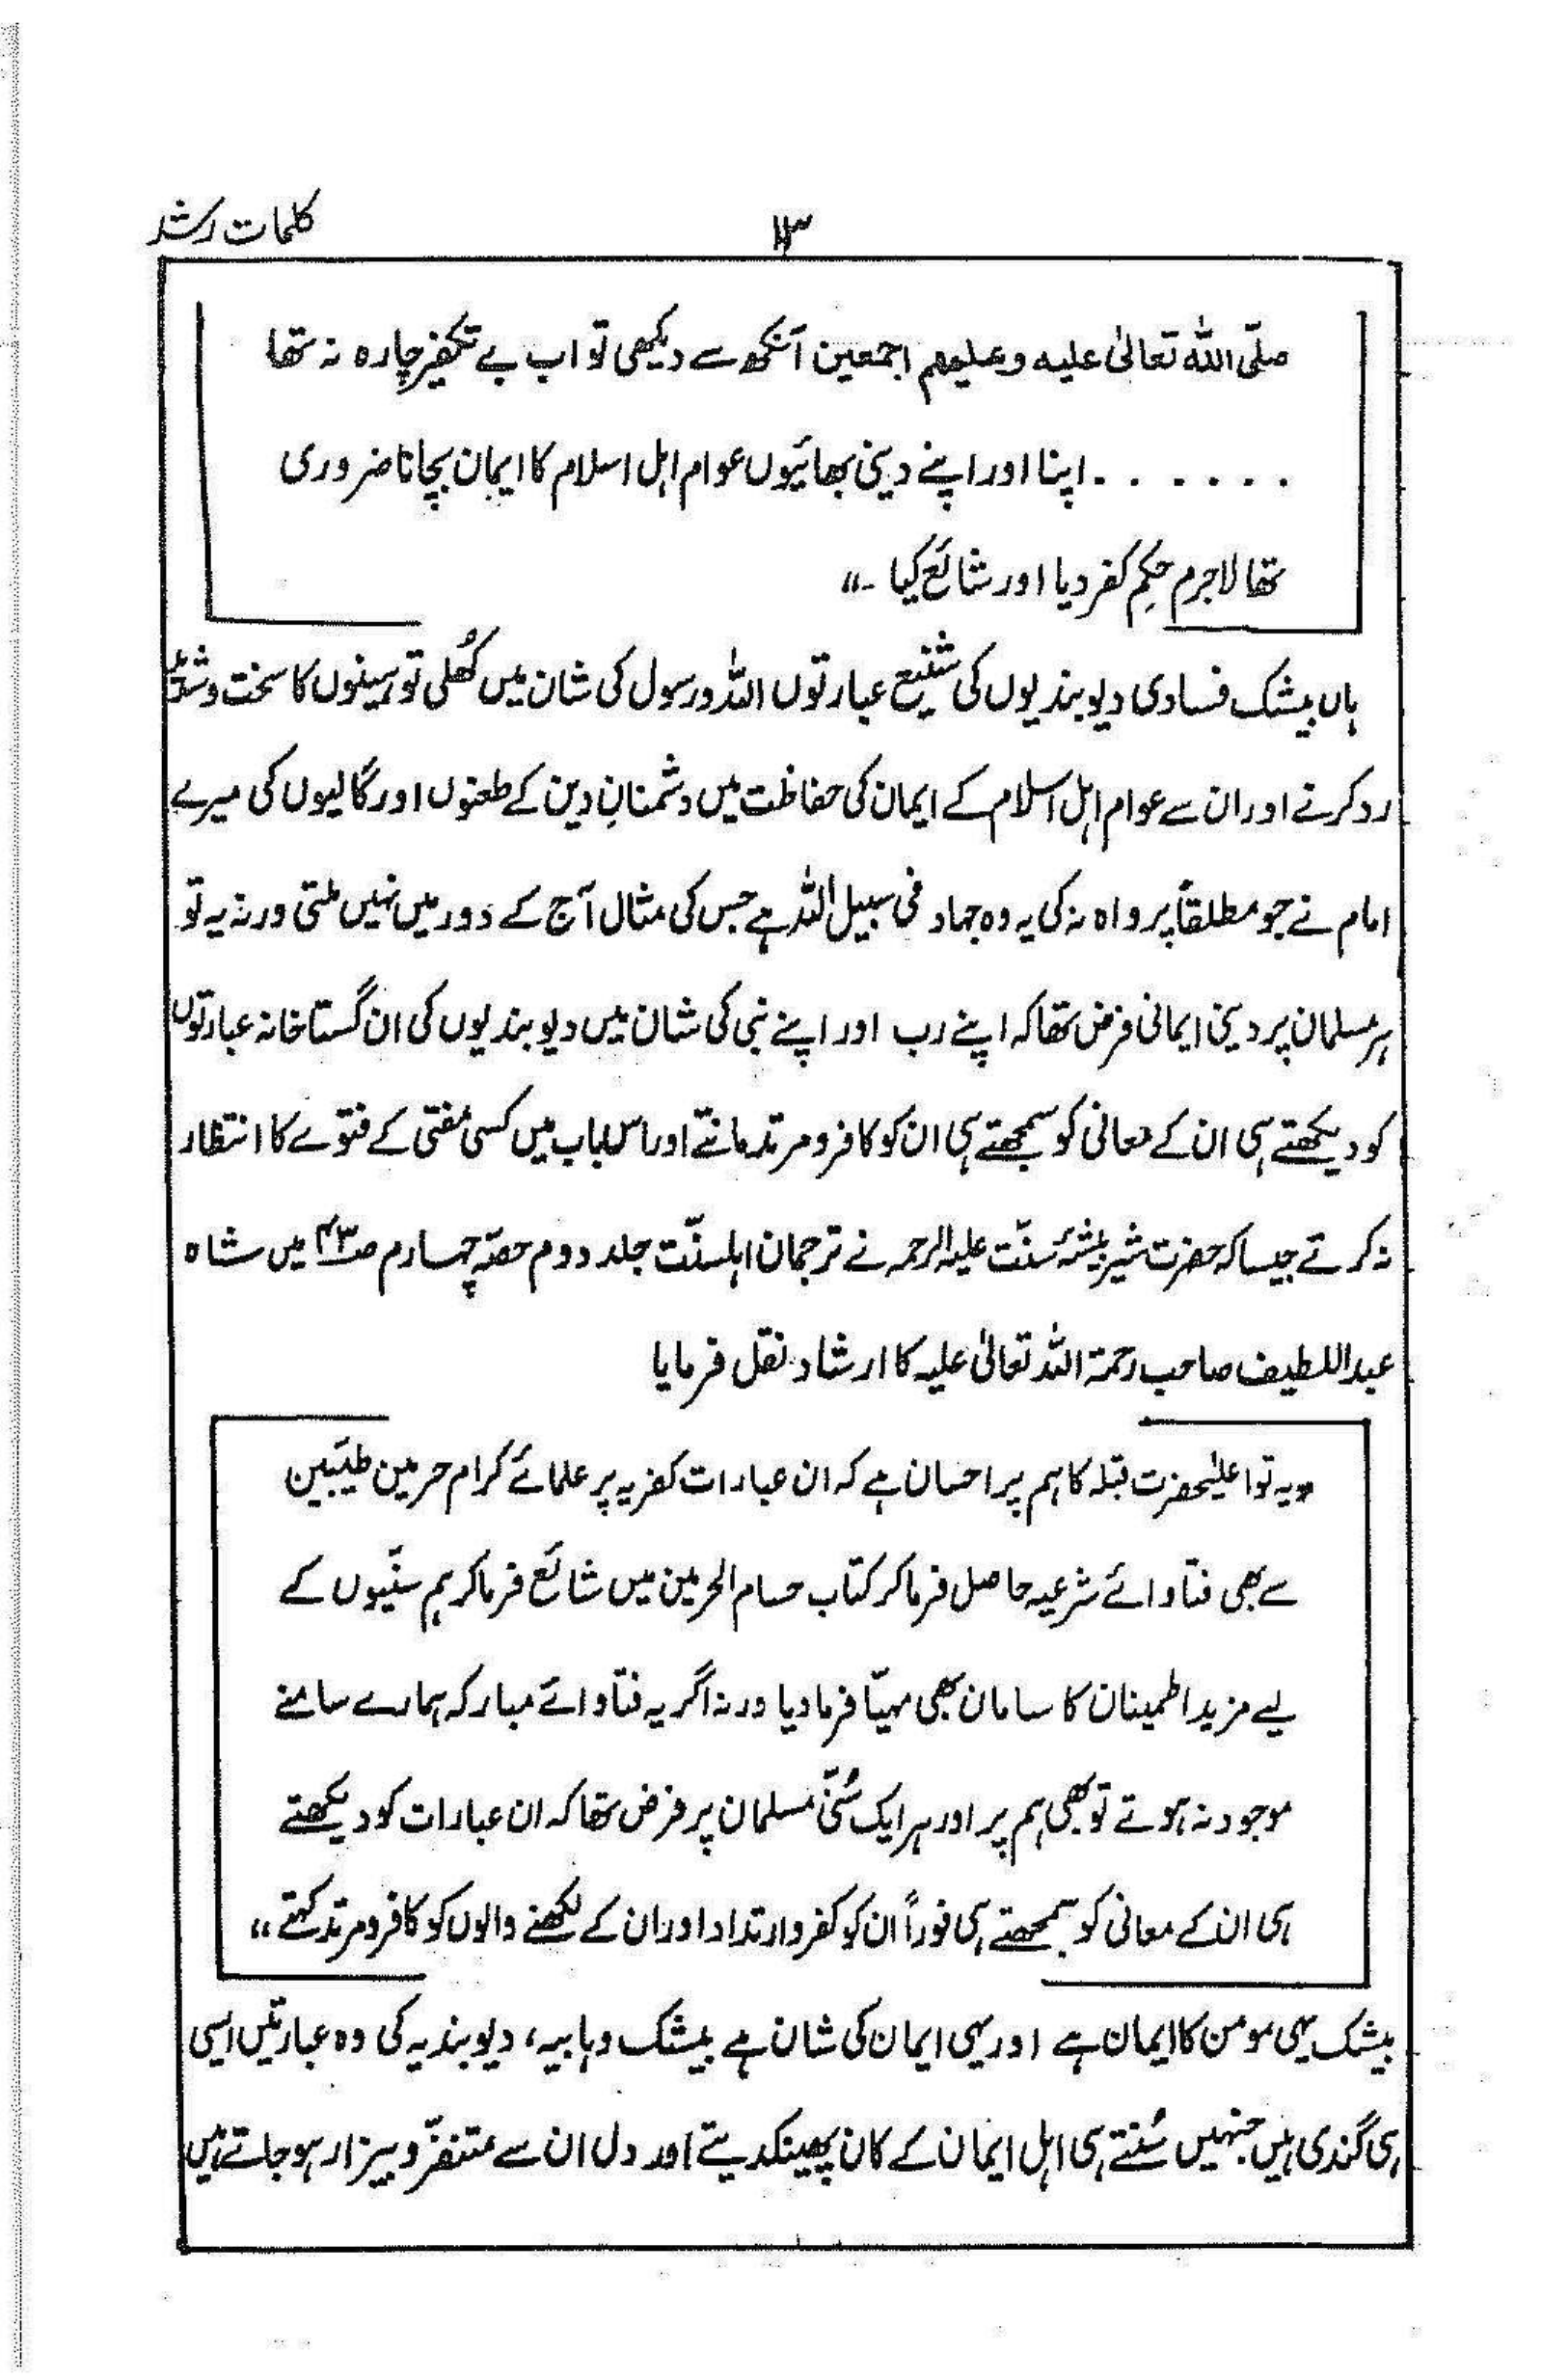 کلمات رشد
۱۳
صلّی اللہ تعالیٰ علیہ وعلیہم اجمعین آنکھ سے دیکھی تو اب بے تکفیر چارہ نہ تھا
. . . . . . اپنا اور اپنے دینی بھائیوں عوام اہل اسلام کا ایمان بچانا ضروری
تھا لاجرم حکمِ کفر دیا اور شائع کیا ۔"
ہاں بیشک فسادی دیوبندیوں کی شنیع عبارتوں اللہ ورسول کی شان میں کُھلی توہینوں کا سخت و
رد کرنے اور ان سے عوام اہل اسلام کے ایمان کی حفاظت میں دشمنانِ دین کے طعنوں اور گالیوں کی میرے
امام نے جو مطلقاً پرواہ نہ کی یہ وہ جہاد فی سبیل اللہ ہے جس کی مثال آج کے دور میں نہیں ملتی ورنہ یہ تو
ہر مسلمان پر دینی ایمانی فرض تھا کہ اپنے رب اور اپنے نبی کی شان میں دیوبندیوں کی ان گستاخانہ عبارتوں
کو دیکھتے ہی ان کے معانی کو سمجھتے ہی ان کو کافر و مرتد مانتے اور اس باب میں کسی مفتی کے فتوے کا انتظار
نہ کرتے جیسا کہ حضرت شیر بیشۂ سنّت علیہ الرحمہ نے ترجمان اہلسنّت جلد دوم حصّہ چہارم صـ۴۳ میں شاہ
عبداللطیف صاحب رحمۃ اللہ تعالیٰ علیہ کا ارشاد نقل فرمایا
"یہ تو اعلیٰحضرت قبلہ کا ہم پر احسان ہے کہ ان عبارات کفریہ پر علمائے کرام حرمین طیّبین
سے بھی فتاوائے شرعیہ حاصل فرما کر کتاب حسام الحرمین میں شائع فرما کر ہم سنّیوں کے
لیے مزید اطمینان کا سامان بھی مہیّا فرما دیا ورنہ اگر یہ فتاوائے مبارکہ ہمارے سامنے
موجود نہ ہوتے تو بھی ہم پر اور ہر ایک سُنّی مسلمان پر فرض تھا کہ ان عبارات کو دیکھتے
ہی ان کے معانی کو سمجھتے ہی فوراً ان کو کفر و ارتداد اور ان کے لکھنے والوں کو کافر و مرتد کہتے"
بیشک یہی مومن کا ایمان ہے اور یہی ایمان کی شان ہے بیشک وہابیہ، دیوبندیہ کی وہ عبارتیں ایسی
ہی گندی ہیں جنہیں سُنتے ہی اہل ایمان کے کان پھینکدیتے اور دل ان سے متنفّر و بیزار ہو جاتے ہیں